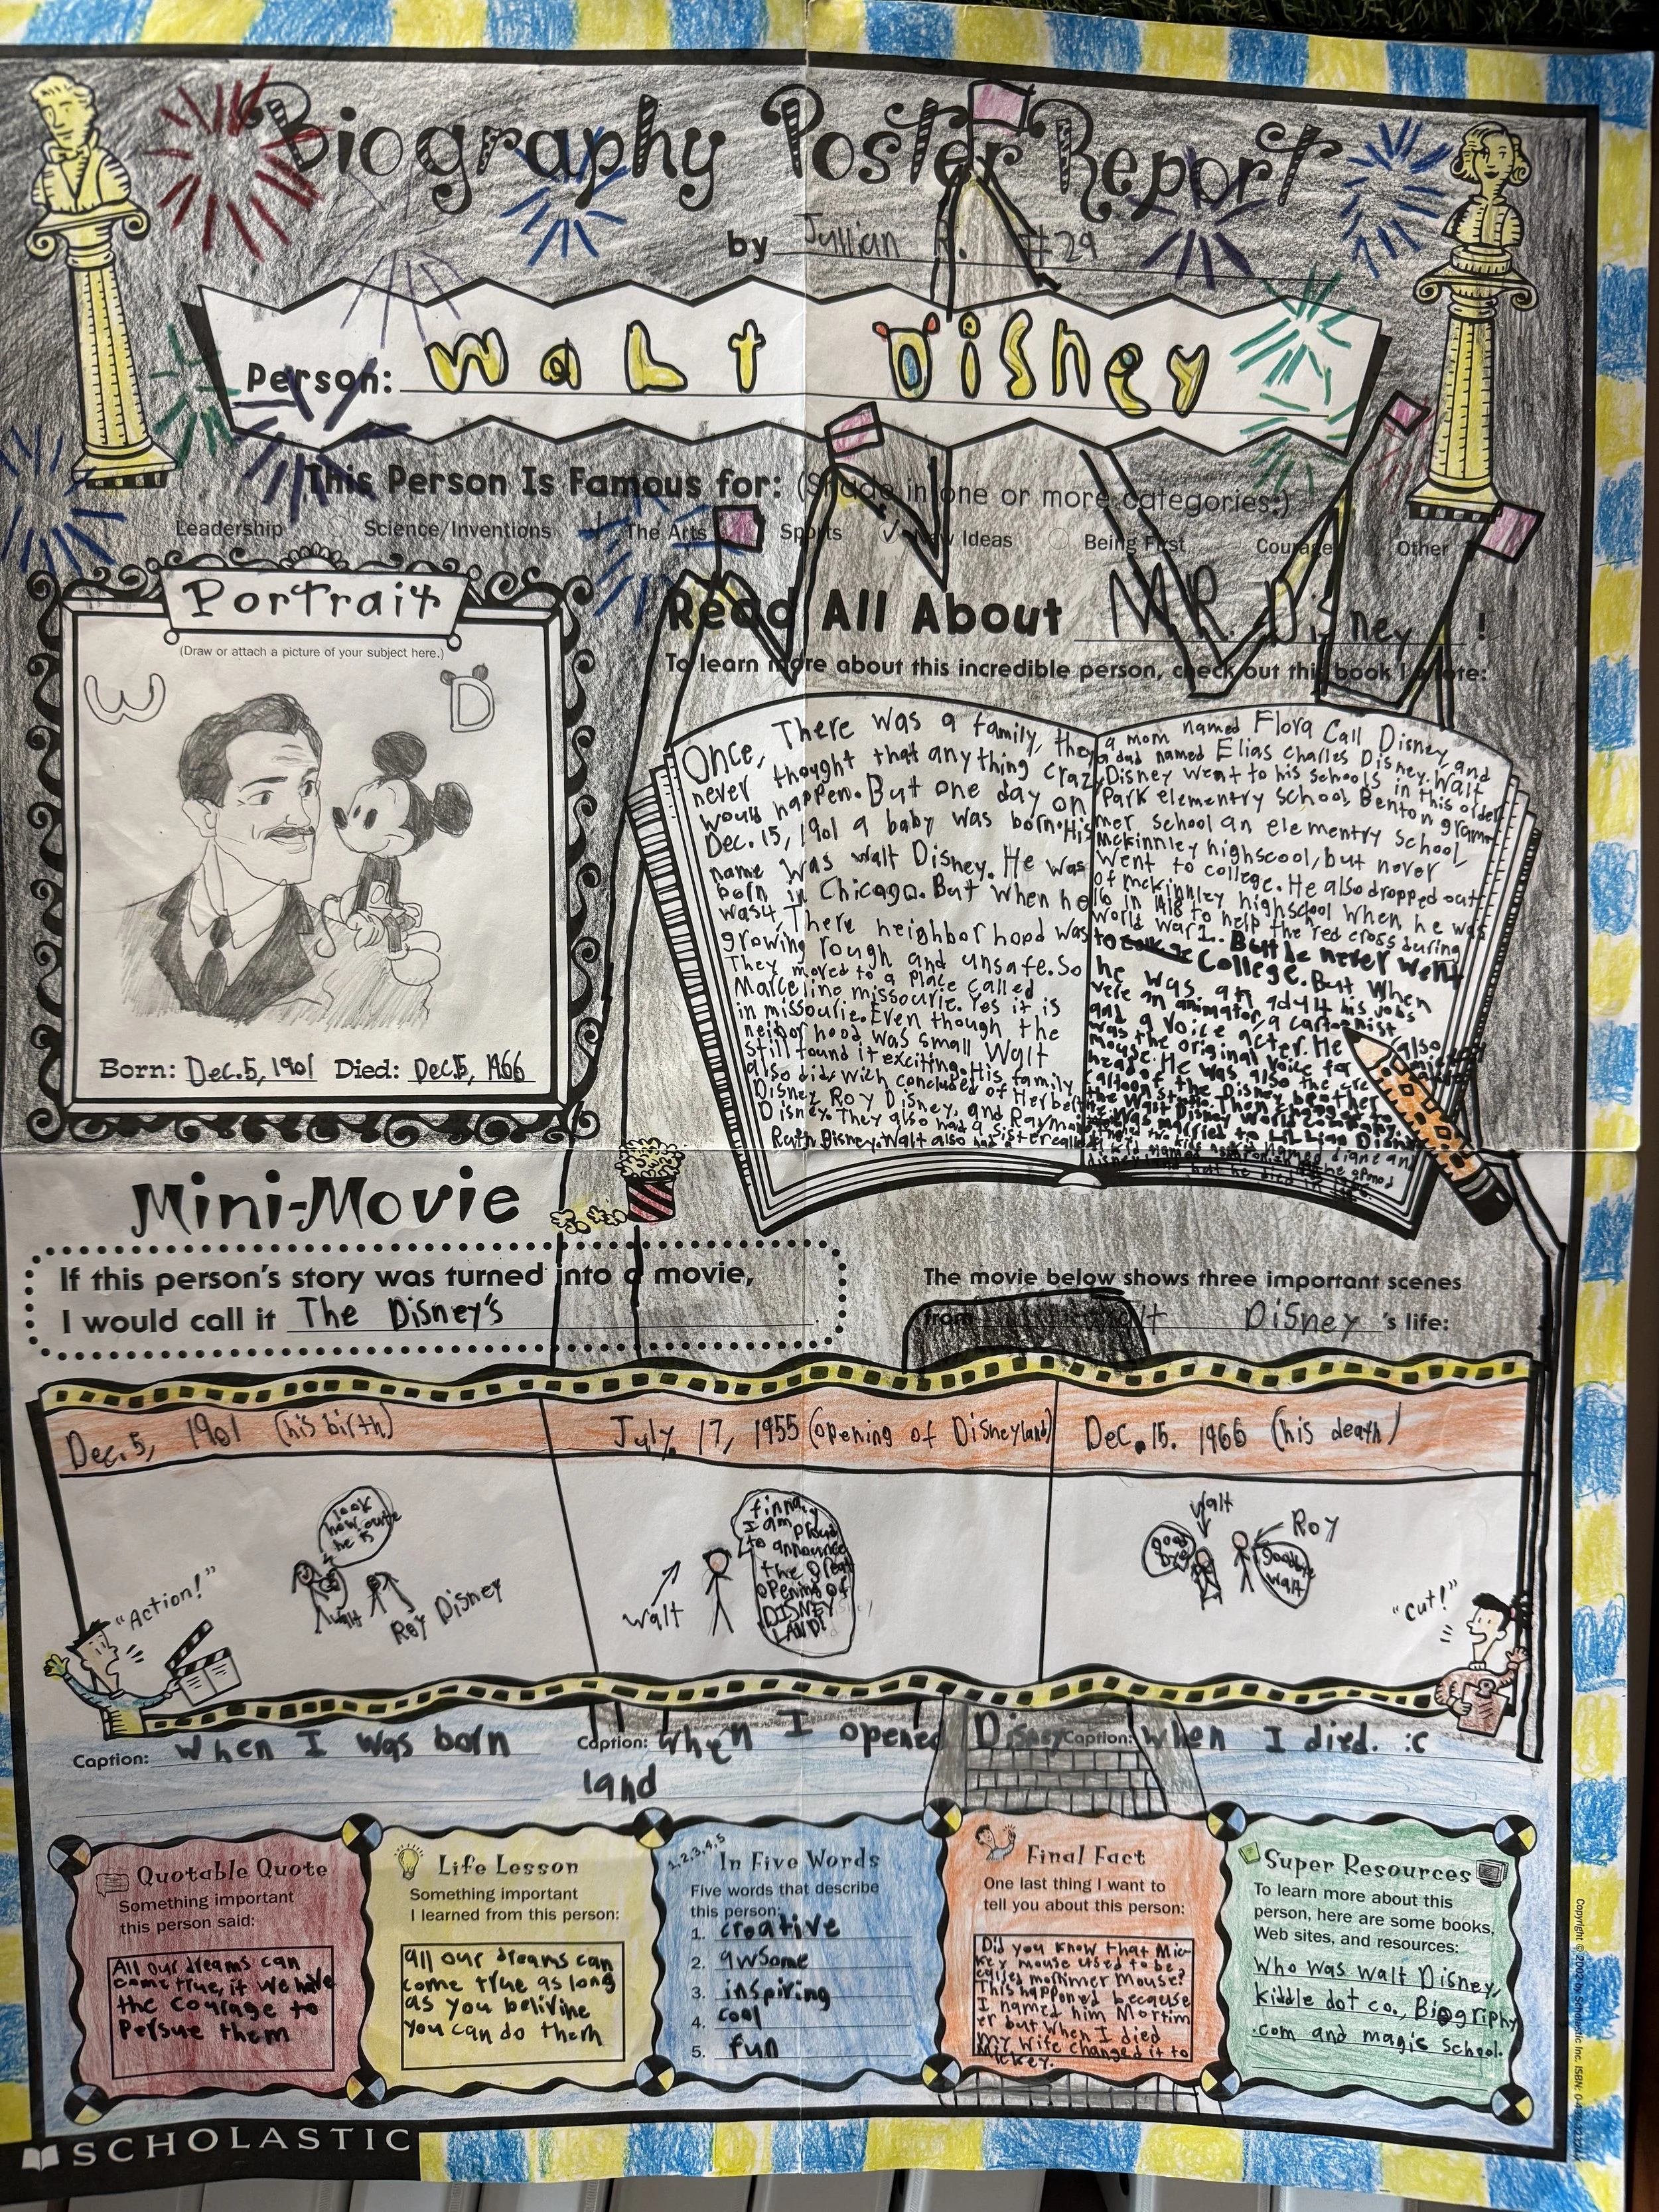 Biography Poster Report
by Jullian #29
Person: Walt Disney
This Person Is Famous for: (Shade in one or more categories:)
Leadership Science/Inventions The Arts Sports New Ideas Being First Courage Other
Portrait
(Draw or attach a picture of your subject here.)
W D
Born: Dec. 5, 1901 Died: Dec. 15, 1966
Read All About MR. Disney !
To learn more about this incredible person, check out this book I wrote:
Once, There was a family, they
never thought that anything crazy
would happen. But one day on
Dec. 15, 1901 a baby was born. His
name was Walt Disney. He was
born in Chicago. But when he
was 4, There neighborhood was
growing rough and unsafe. So
They moved to a place called
Marceline missourie. Yes it is
in missourie. Even though the
neighborhood was small Walt
still found it exciting. His family
also did, wich concluded of Herbert
Disney, Roy Disney, and Raymond
Disney. They also had a sister called
Ruth Disney. Walt also had
a mom named Flora Call Disney, and
a dad named Elias Charles Disney. Walt
Disney went to his schools in this order
Park elementry school, Benton gram-
mer school an elementry school,
Mckinnley highscool, but never
went to college. He also dropped out
of mckinnley highschool when he was
16 in 1918 to help the red cross during
World war 1. But he never went
to College. But when
he was an adult his jobs
were an animator, a cartoonist
and a voice acter. He also
was the original voice for mickey
mouse. He was also the
head of the Disney brother
cartoon studio. Then changed to
the Walt Disney World company.
He was married to Lillian Disney
had two kids named diane and
Mini-Movie
If this person's story was turned into a movie,
I would call it The Disney's.
The movie below shows three important scenes
from Walt Disney's life:
Dec. 5, 1901 (his birth)
look
how cute
he is
Walt
Roy Disney
"Action!"
July. 17, 1955 (opening of Disneyland)
Walt
I am proud
to announce
the great
opening of
DISNEY
LAND!
Dec. 15. 1966 (his death)
Walt
good
bye
Roy
goodbye
walt
"Cut!"
Caption: When I was born
Caption: When I opened Disney
land
Caption: When I died. :c
Quotable Quote
Something important
this person said:
All our dreams can
come true, if we have
the courage to
persue them
Life Lesson
Something important
I learned from this person:
all our dreams can
come true as long
as you belivine
you can do them
1, 2, 3, 4, 5
In Five Words
Five words that describe
this person:
1. creative
2. awsome
3. inspiring
4. cool
5. fun
Final Fact
One last thing I want to
tell you about this person:
Did you know that Mic-
key mouse used to be
called mortimer Mouse?
This happoned because
I named him Mortim
er but when I died
my wife changed it to
Mickey.
Super Resources
To learn more about this
person, here are some books,
Web sites, and resources:
Who was Walt Disney,
kiddle dot co., Biogriphy
.com and magic school.
SCHOLASTIC
Copyright © 2002 by Scholastic Inc. ISBN: